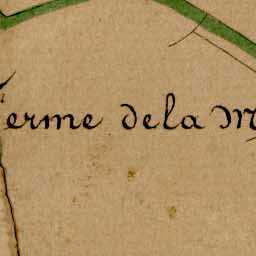 ferme de la M